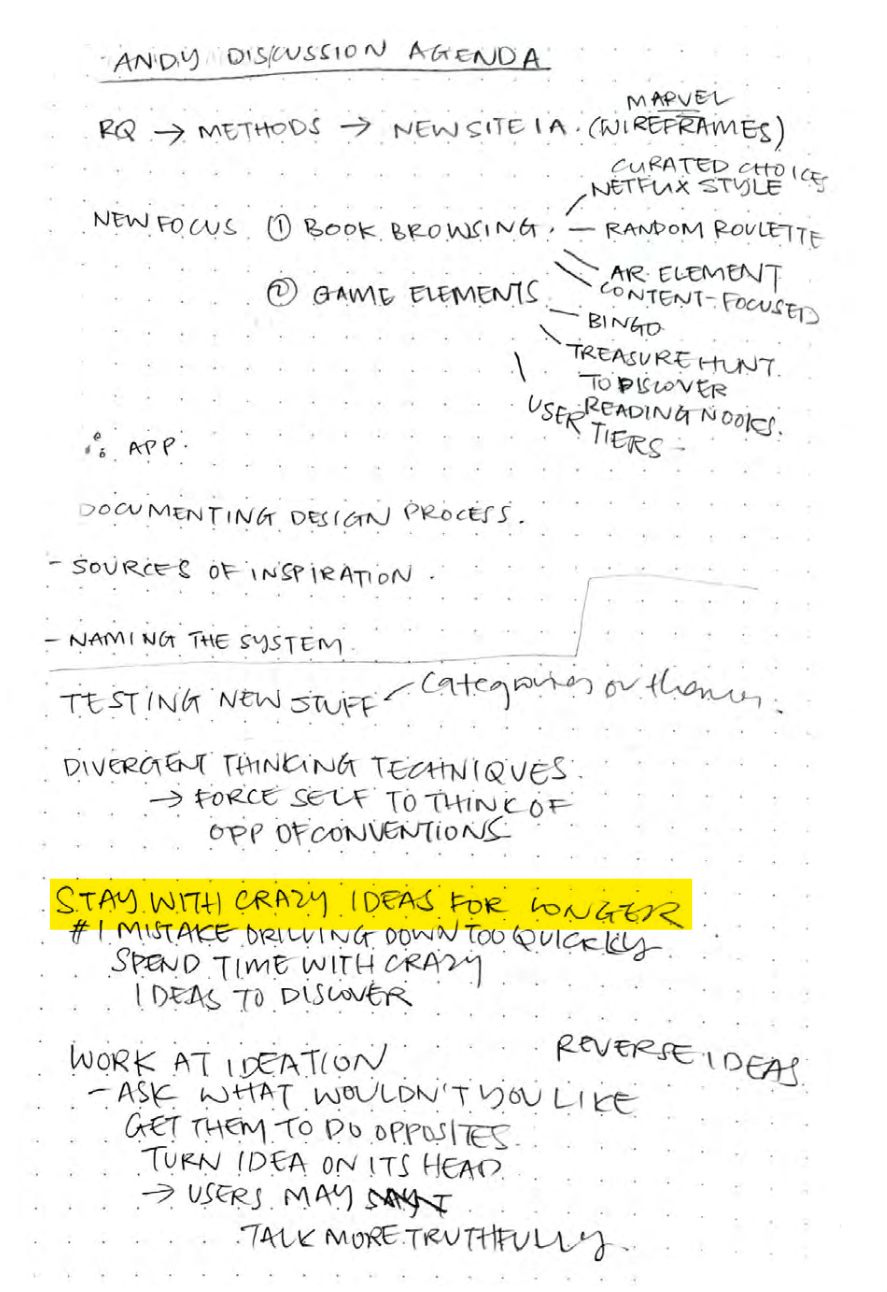 ANDY DISCUSSION AGENDA
MARVEL
RQ → METHODS → NEW SITE IA. (WIREFRAMES)
CURATED CHOICES
NETFLIX STYLE
NEW FOCUS ① BOOK BROWSING. — RANDOM ROULETTE
AR ELEMENT
CONTENT-FOCUSED
② GAME ELEMENTS
— BINGO
TREASURE HUNT
TO DISCOVER
READING NOOKS.
USER TIERS -
∴ APP.
DOCUMENTING DESIGN PROCESS.
- SOURCES OF INSPIRATION.
- NAMING THE SYSTEM.
TESTING NEW STUFF - Categories or themes.
DIVERGENT THINKING TECHNIQUES.
→ FORCE SELF TO THINK OF
OPP OF CONVENTIONS
STAY WITH CRAZY IDEAS FOR LONGER
#1 MISTAKE DRILLING DOWN TOO QUICKLY
SPEND TIME WITH CRAZY
IDEAS TO DISCOVER
WORK AT IDEATION
REVERSE IDEAS
- ASK WHAT WOULDN'T YOU LIKE
GET THEM TO DO OPPOSITES
TURN IDEA ON ITS HEAD
→ USERS MAY
TALK MORE TRUTHFULLY.